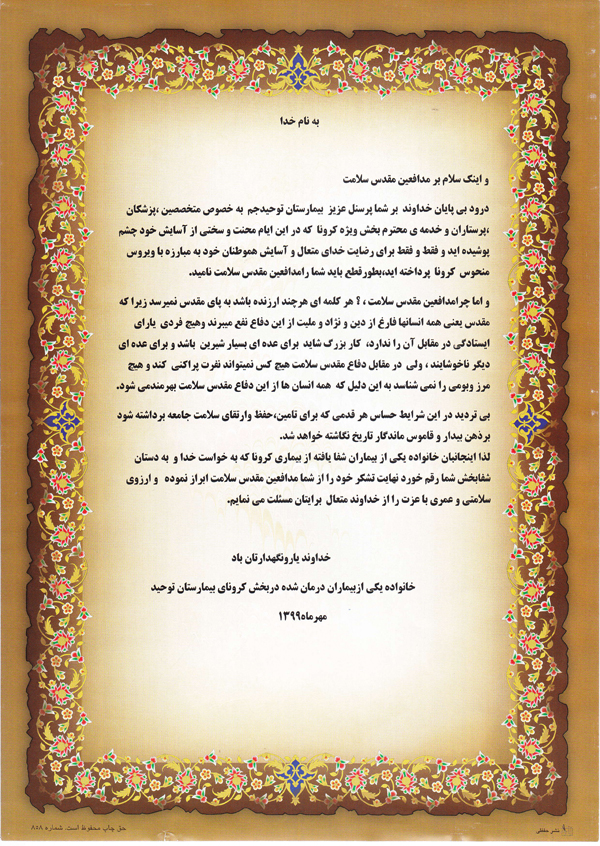 به نام خدا
و اینک سلام بر مدافعین مقدس سلامت
درود بی پایان خداوند بر شما پرسنل عزیز بیمارستان توحیدجم به خصوص متخصصین ،پزشکان
،پرستاران و خدمه ی محترم بخش ویژه کرونا که در این ایام محنت و سختی از آسایش خود چشم
پوشیده اید و فقط و فقط برای رضایت خدای متعال و آسایش هموطنان خود به مبارزه با ویروس
منحوس کرونا پرداخته اید،بطورقطع باید شما رامدافعین مقدس سلامت نامید.
و اما چرامدافعین مقدس سلامت ، ؟ هر کلمه ای هرچند ارزنده باشد به پای مقدس نمیرسد زیرا که
مقدس یعنی همه انسانها فارغ از دین و نژاد و ملیت از این دفاع نفع میبرند وهیچ فردی یارای
ایستادگی در مقابل آن را ندارد، کار بزرگ شاید برای عده ای بسیار شیرین باشد و برای عده ای
دیگر ناخوشایند ، ولی در مقابل دفاع مقدس سلامت هیچ کس نمیتواند نفرت پراکنی کند و هیچ
مرز وبومی را نمی شناسد به این دلیل که همه انسان ها از این دفاع مقدس سلامت بهرمندمی شود.
بی تردید در این شرایط حساس هر قدمی که برای تامین،حفظ وارتقای سلامت جامعه برداشته شود
برذهن بیدار و قاموس ماندگار تاریخ نگاشته خواهد شد.
لذا اینجانبان خانواده یکی از بیماران شفا یافته از بیماری کرونا که به خواست خدا و به دستان
شفابخش شما رقم خورد نهایت تشکر خود را از شما مدافعین مقدس سلامت ابراز نموده و ارزوی
سلامتی و عمری با عزت را از خداوند متعال برایتان مسئلت می نمایم.
خداوند یارونگهدارتان باد
خانواده یکی ازبیماران درمان شده دربخش کرونای بیمارستان توحید
مهرماه۱۳۹۹
نشر حفظی
حق چاپ محفوظ است. شماره ۸۵۸